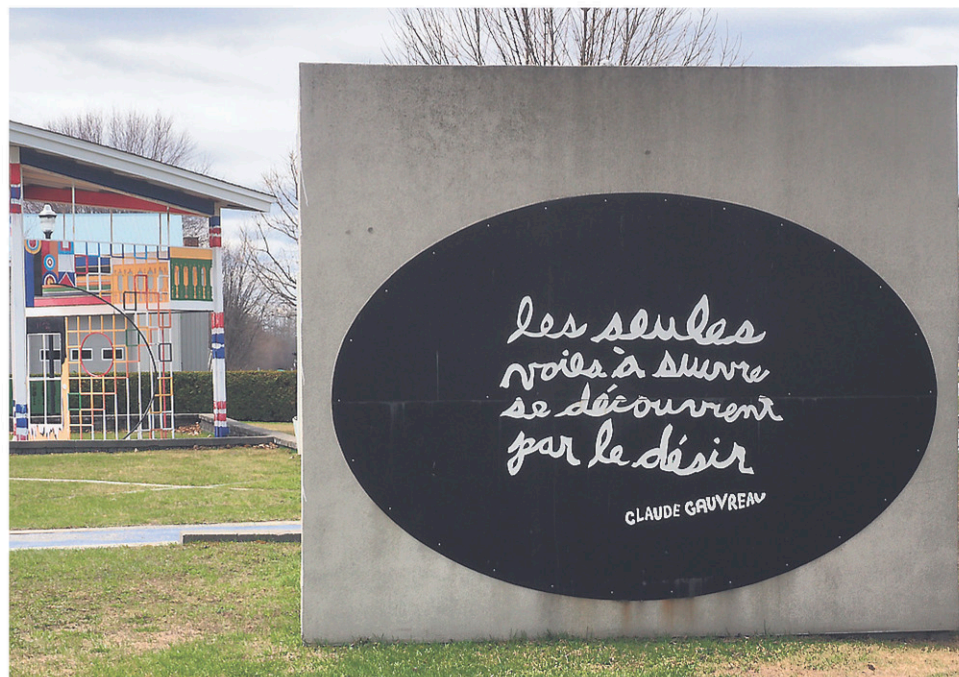 les seules
voies à suivre
se découvrent
par le désir
CLAUDE GAUVREAU